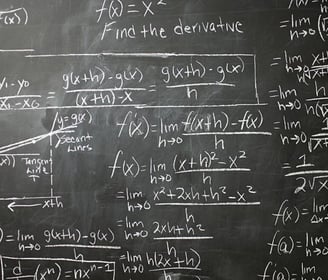 f(x)
f(x) = x²
Find the derivative
y₁ - y₀
x₁ - x₀
= g(x+h) - g(x) / (x+h) - x = g(x+h) - g(x) / h
y = g(x)
Secant Lines
Tangent Line
x+h
f'(x) = lim h→0 f(x+h) - f(x) / h
f(x) = lim h→0 (x+h)² - x² / h
= lim h→0 x² + 2xh + h² - x² / h
= lim h→0 2xh + h² / h
= lim h→0 h(2x+h) / h
) = lim h→0 g(x+h) - g(x) / h
d (xⁿ) = nxⁿ⁻¹
= lim h→0
= lim h→0
= lim h→0
= lim h→0
= 1 / 2√x
f(x) = lim
f(a) = lim